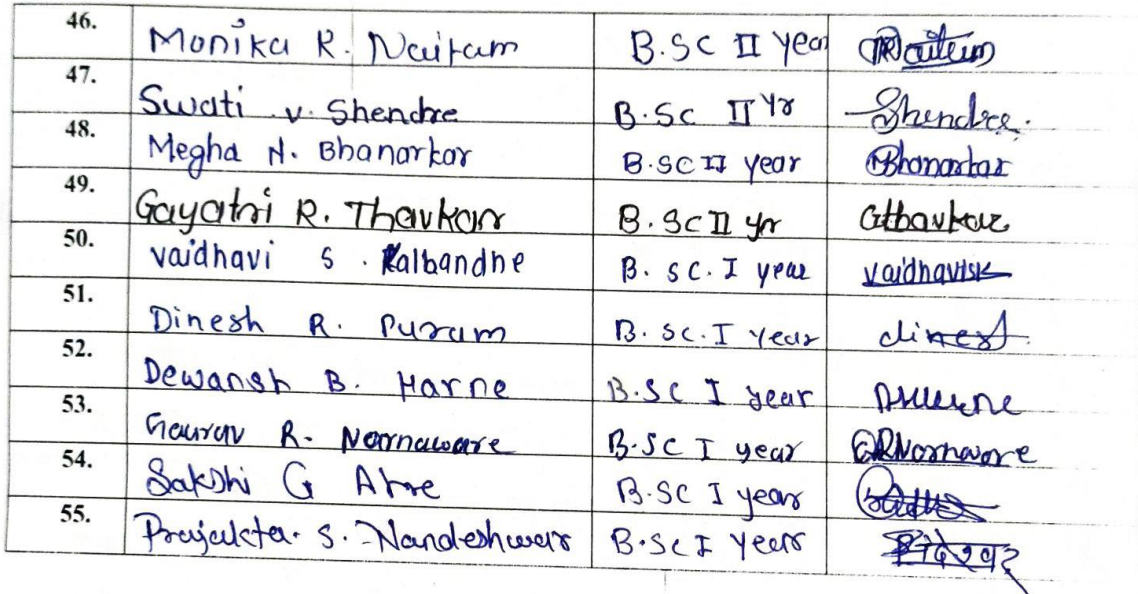 46. Monika R. Naitam B.SC II year
47. Swati v. Shendre B.Sc II Yr Shendre.
48. Megha N. Bhanarkar B.SC II year Bhanarkar
49. Gayatri R. Thavkar B.Sc II yr Gthavkar
50. vaidhavi S. Kalbandhe B. SC. I year vaidhavisk
51. Dinesh R. Puram B. SC. I Year dinesh
52. Dewansh B. Harne B.SC I year
53. Gaurav R. Narnaware B.SC I year GRNarnware
54. Sakshi G Atre B.SC I year
55. Prajakta. S. Nandeshwar B.Sc I Year